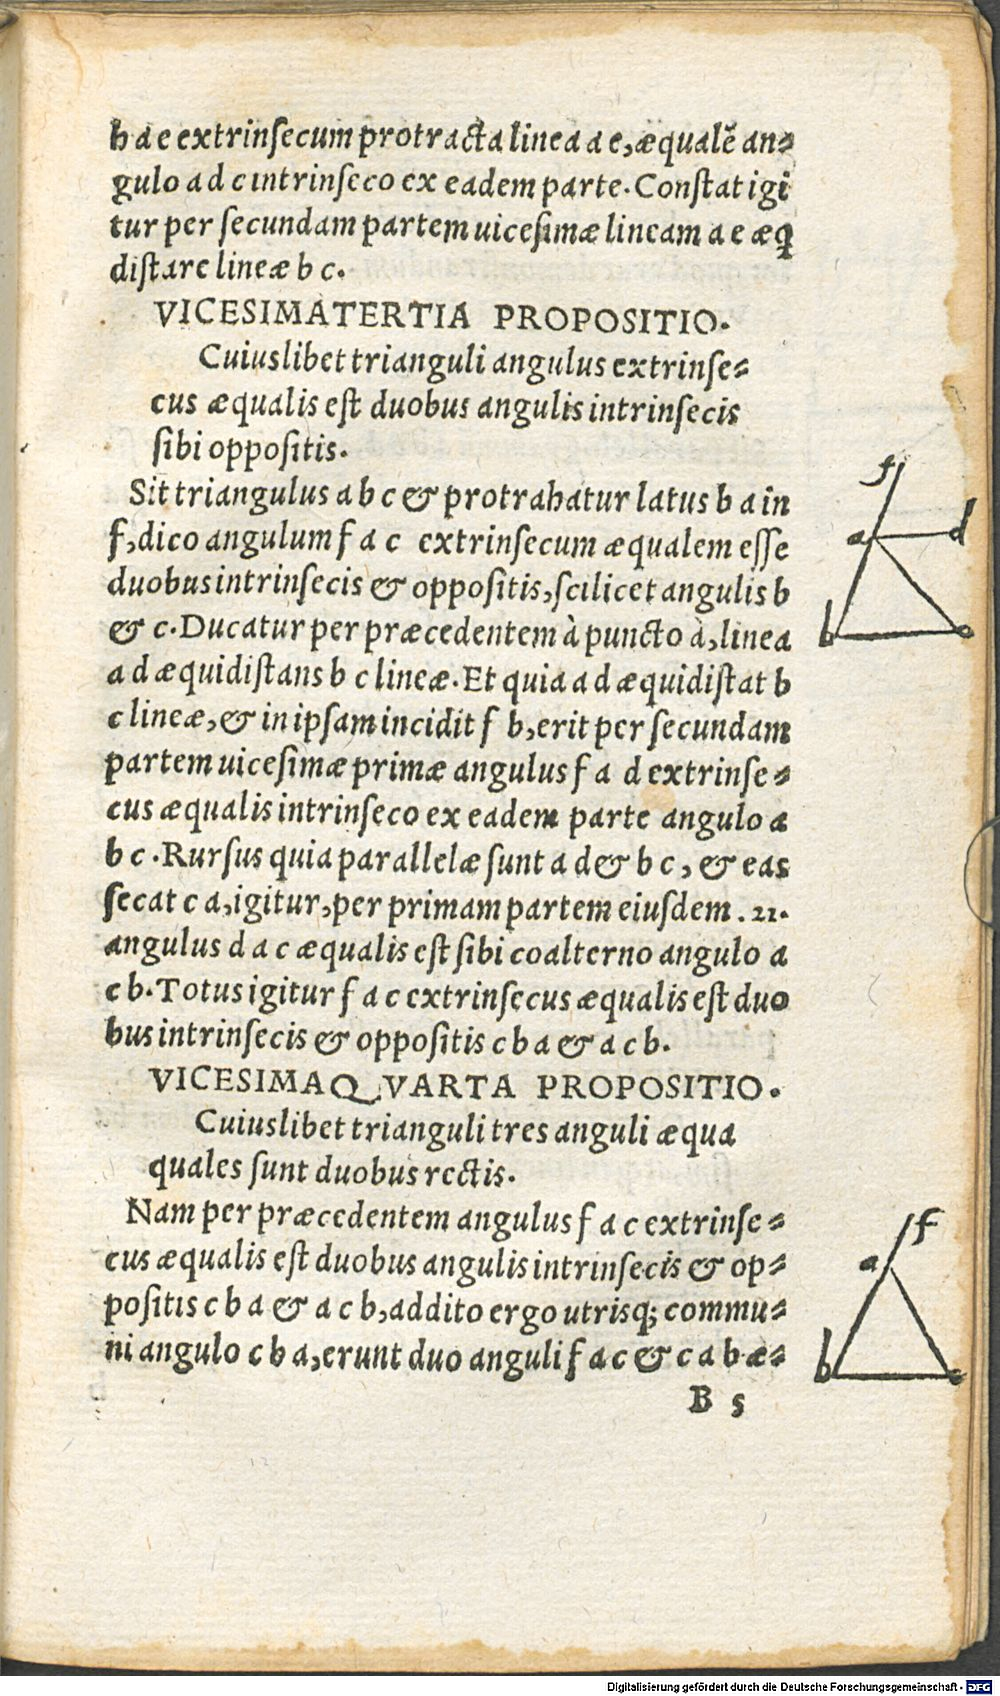 h a e extrinsecum protracta linea a e, æqualẽ an-
gulo a d c intrinseco ex eadem parte. Constat igi
tur per secundam partem uicesimæ lineam a e æq
distare lineæ b c.
VICESIMATERTIA PROPOSITIO.
Cuiuslibet trianguli angulus extrinse-
cus æqualis est duobus angulis intrinsecis
sibi oppositis.
Sit triangulus a b c & protrahatur latus b a in
f, dico angulum f a c extrinsecum æqualem esse
duobus intrinsecis & oppositis, scilicet angulis b
& c. Ducatur per præcedentem à puncto à, linea
a d æquidistans b c lineæ. Et quia a d æquidistat b
c lineæ, & in ipsam incidit f b, erit per secundam
partem uicesimæ primæ angulus f a d extrinse-
cus æqualis intrinseco ex eadem parte angulo a
b c. Rursus quia parallelæ sunt a d & b c, & eas
secat c a, igitur, per primam partem eiusdem .21.
angulus d a c æqualis est sibi coalterno angulo a
c b. Totus igitur f a c extrinsecus æqualis est duo
bus intrinsecis & oppositis c b a & a c b.
VICESIMAQVARTA PROPOSITIO.
Cuiuslibet trianguli tres anguli æqua
quales sunt duobus rectis.
Nam per præcedentem angulus f a c extrinse-
cus æqualis est duobus angulis intrinsecis & op-
positis c b a & a c b, addito ergo utrisq; commu-
ni angulo c b a, erunt duo anguli f a c & c a b æ-
B 5
f
a d
b c
f
a
b c
Digitalisierung gefördert durch die Deutsche Forschungsgemeinschaft - DFG